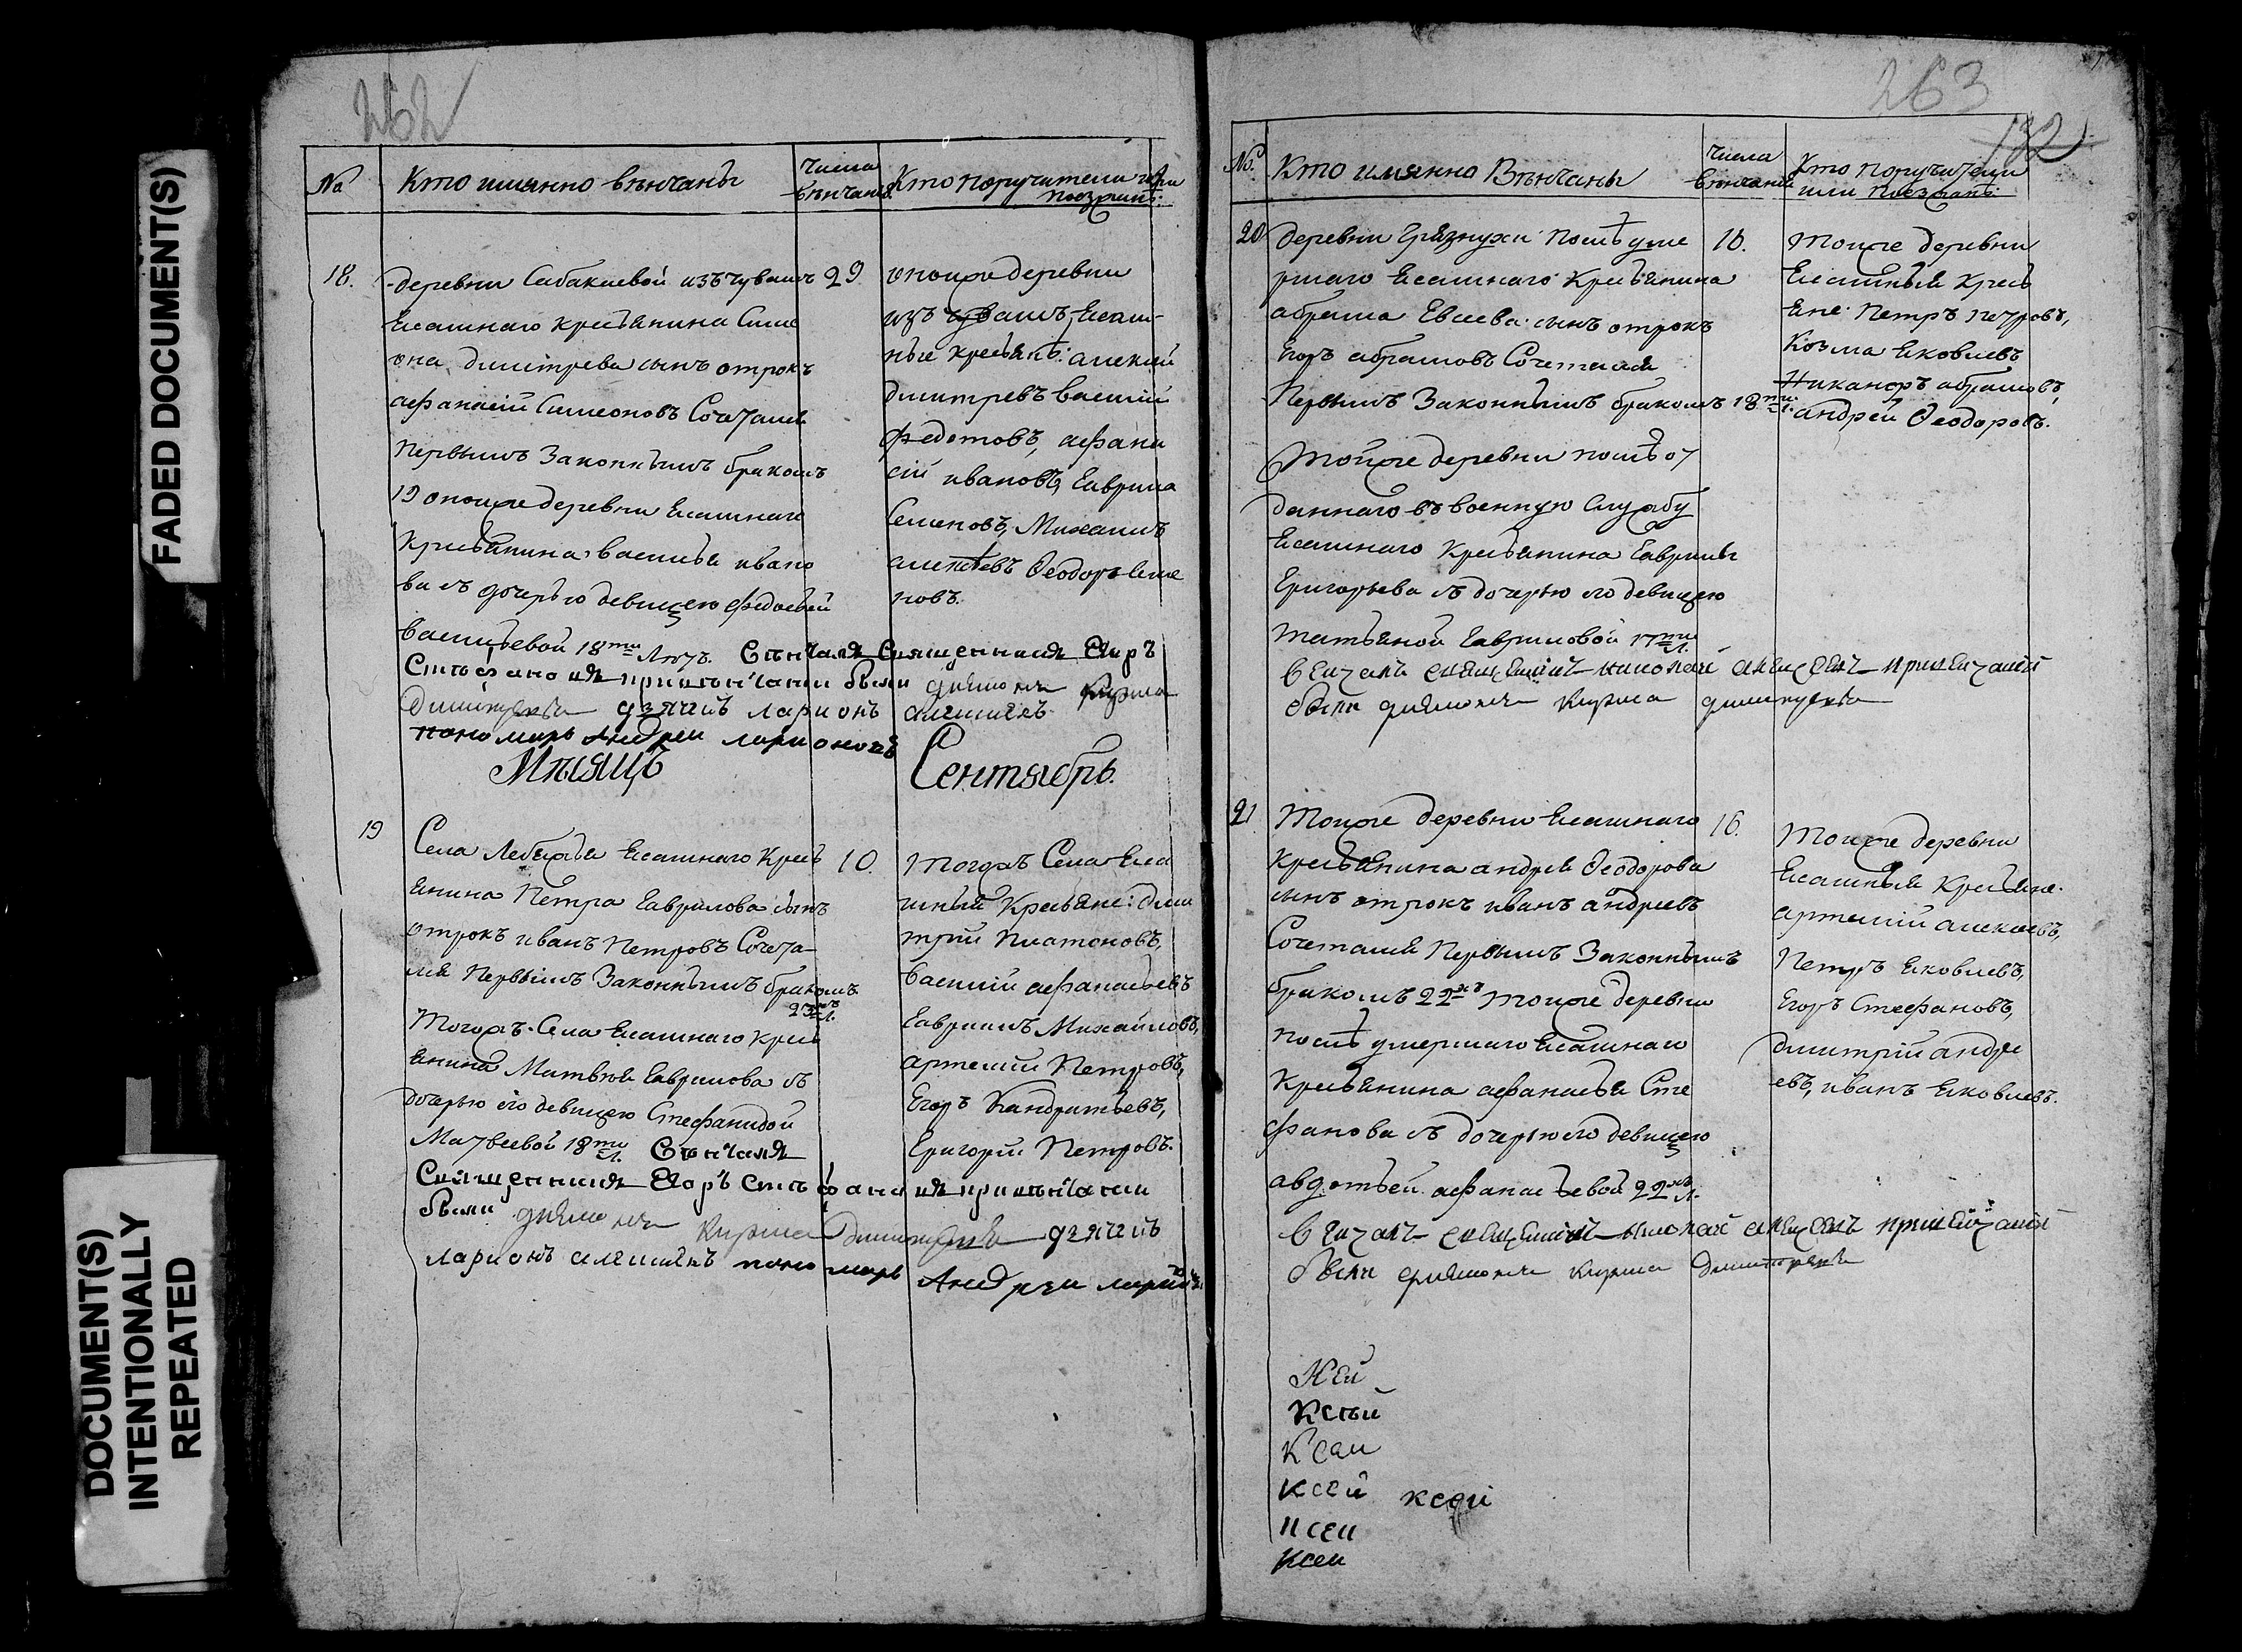 FADED DOCUMENT(S)
DOCUMENT(S)
INTENTIONALLY
REPEATED
262
№
Кто имянно вѣнчаны
числа
вѣнчания
Кто поручители или
поезжанъ:
18.
деревни Сабакаевой изъ чувашъ
ясашнаго крестьянина Симе
она Димитрева сынъ отрокъ
афанасій Симеоновъ Сочетался
Первымъ Законнымъ бракомъ
19 оной же деревни ясашнаго
Крестьянина василья ивано
ва съ дочерью девицею
васильевой 18ти Лѣтъ. Венчалъ Священникъ Егоръ
Стефановъ при венчании были диаконъ Кузма
Димитревъ дьячикъ ларионъ алексиевъ
пономарь Андреи ларионовъ
29
оной же деревни
изъ чувашъ ясаш-
ные крестьянѣ: алексей
Димитревъ василій
Федотовъ, афана
сій ивановъ, Гаврила
Семеновъ, Михаилъ
алексѣевъ Ѳеодоръ Семе
новъ.
Мѣсяцъ Сентябрь.
19
Села Лебяжья ясашнаго Кресть
янина Петра Гаврилова сынъ
отрокъ иванъ Петровъ Сочета-
лся Первымъ Законнымъ бракомъ
23хъ Л.
Тогожъ Села ясашнаго Кресть
янина Матвея Гаврилова съ
дочерью его девицею Стефанидой
Матвеевой 18ти Л. Венчалъ
Священникъ Егоръ Стефановъ при венчании
были диаконъ Кузма Димитревъ дьячикъ
ларионъ алексиевъ пономарь Андреи ларионовъ
10.
Тогожъ Села яса
шный Крестьяне: Дми
трій Платоновъ,
василій афанасьевъ
Гавриилъ Михайловъ,
артемій Петровъ,
Егоръ Кандратьевъ,
Григорій Петровъ.
263
132
№.
Кто имянно Вѣнчаны
числа
вѣнчания
Кто поручители
или поезжанъ:
20
деревни Грязнухи послѣ уме
ршаго ясашнаго Крестьянина
абрама Евсева сынъ отрокъ
Егоръ абрамовъ Сочетался
Первымъ Законнымъ бракомъ 18ти Л.
Той же деревни послѣ от
даннаго въ военную Службу
ясашнаго Крестьянина Гаврилы
Григорьева съ дочерью его девицею
татьяной Гавриловой 17ти Л.
венчалъ священникъ николай алексеевъ при венчаніи
были диаконъ Кузма димитревъ
16.
Той же деревни
ясашныя Кресть
яне: Петръ Петровъ,
Козма яковлевъ
Никаноръ абрамовъ,
андрей Ѳеодоровъ.
21
Той же деревни ясашнаго
Крестьянина андрея Ѳеодорова
сынъ отрокъ иванъ андреевъ
Сочетался Первымъ Законнымъ
бракомъ 22хъ Той же деревни
послѣ умершаго ясашнаго
Крестьянина афанасья Сте
фанова съ дочерью его девицею
авдотьей афанасьевой 22хъ Л.
венчалъ священникъ николай алексеевъ при венчаніи
были диаконъ Кузма Димитревъ
16.
Той же деревни
ясашныя Крестьяне:
артемій алексеевъ,
Петръ яковлевъ,
Егоръ Стефановъ,
Дмитрій андре
евъ, иванъ яковлевъ.
Ксей
Ксей
ксей ксей
ксей